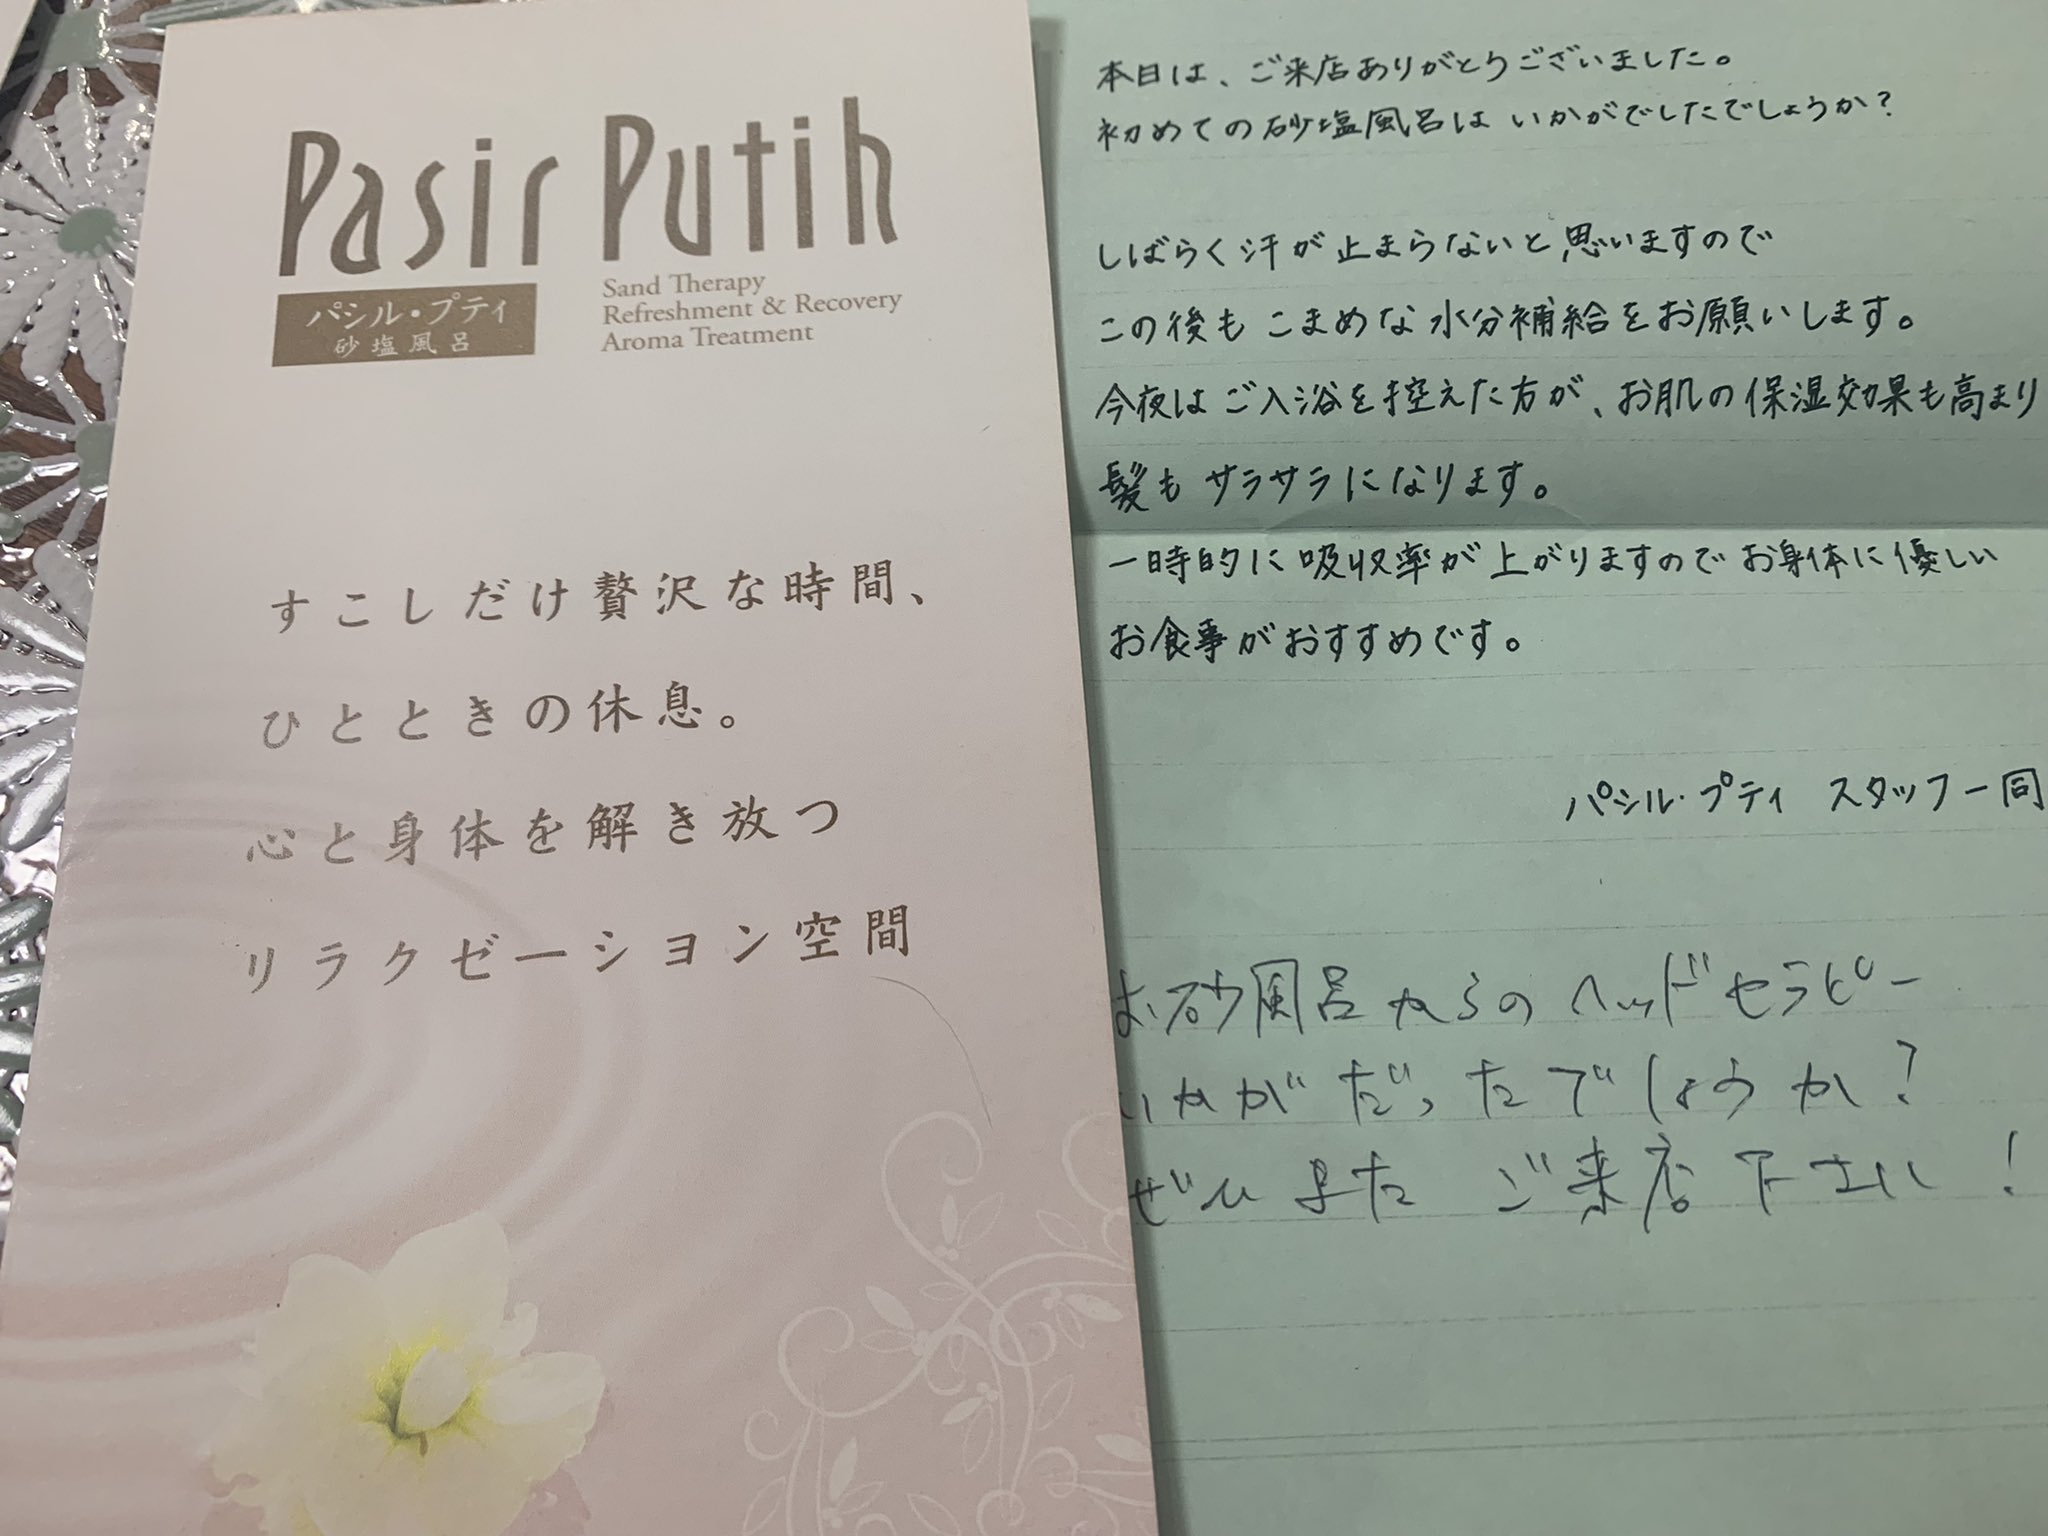 Pasir Putih
パシル・プティ
砂塩風呂
Sand Therapy
Refreshment & Recovery
Aroma Treatment
すこしだけ贅沢な時間、
ひとときの休息。
心と身体を解き放つ
リラクゼーション空間
本日は、ご来店ありがとうございました。
初めての砂塩風呂はいかがでしたでしょうか?
しばらく汗が止まらないと思いますので
この後もこまめな水分補給をお願いします。
今夜はご入浴を控えた方が、お肌の保湿効果も高まり
髪もサラサラになります。
一時的に吸収率が上がりますのでお身体に優しい
お食事がおすすめです。
パシル・プティ スタッフ一同
お砂風呂からのヘッドセラピー
いかがだったでしょうか?
ぜひまた ご来店下さい!